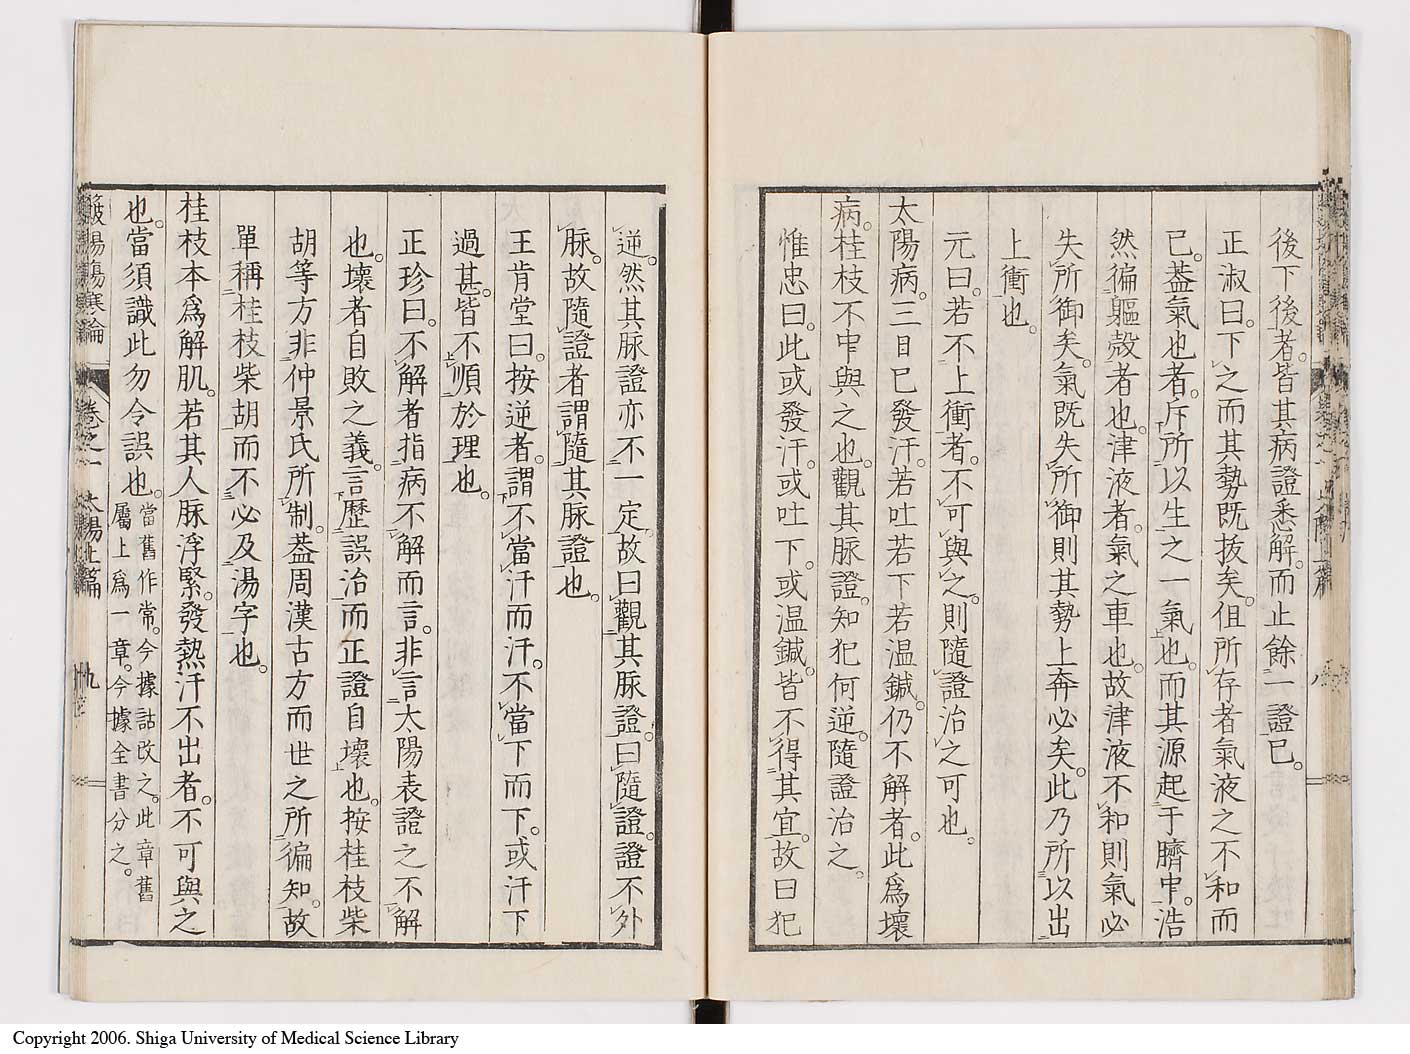 後下後者。皆其病證悉解。而止餘一證已。
正淑曰。下之而其勢既拔矣。但所存者氣液之不和而
已。葢氣也者。斥所以生之一氣也。而其源起于臍中。浩
然徧軀殼者也。津液者。氣之車也。故津液不和則氣必
失所御矣。氣既失所御則其勢上奔必矣。此乃所以出
上衝也。
元曰。若不上衝者。不可與之。則隨證治之可也。
太陽病。三日已發汗。若吐若下若温鍼。仍不解者。此爲壞
病。桂枝不中與之也。觀其脉證。知犯何逆。隨證治之。
惟忠曰。此或發汗。或吐下。或温鍼。皆不得其宜。故曰犯
逆。然其脉證亦不一定。故曰觀其脉證。曰隨證。證不外
脉。故隨證者謂隨其脉證也。
王肯堂曰。按逆者。謂不當汗而汗。不當下而下。或汗下
過甚。皆不順於理也。
正珍曰。不解者指病不解而言。非言太陽表證之不解
也。壞者自敗之義。言歷誤治而正證自壞也。按桂枝柴
胡等方非仲景氏所制。葢周漢古方而世之所徧知。故
單稱桂枝柴胡而不必及湯字也。
桂枝本爲解肌。若其人脉浮緊。發熱汗不出者。不可與之
也。當須識此勿令誤也。當舊作常。今據詁改之。此章舊
屬上爲一章。今據全書分之。
傷寒論 卷之一 太陽上篇 九
Copyright 2006. Shiga University of Medical Science Library